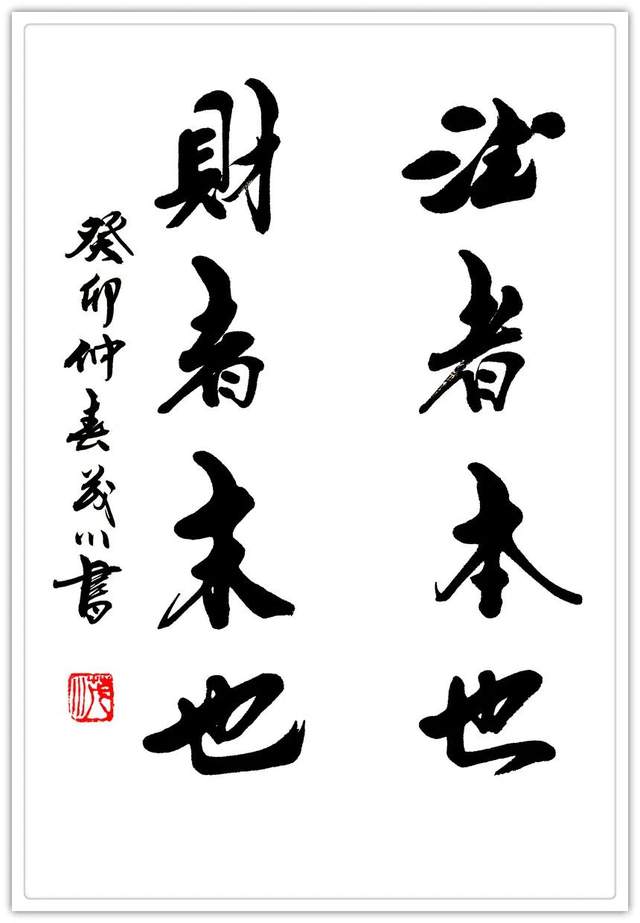 德者本也
財者末也
癸卯仲春茂川書
茂川